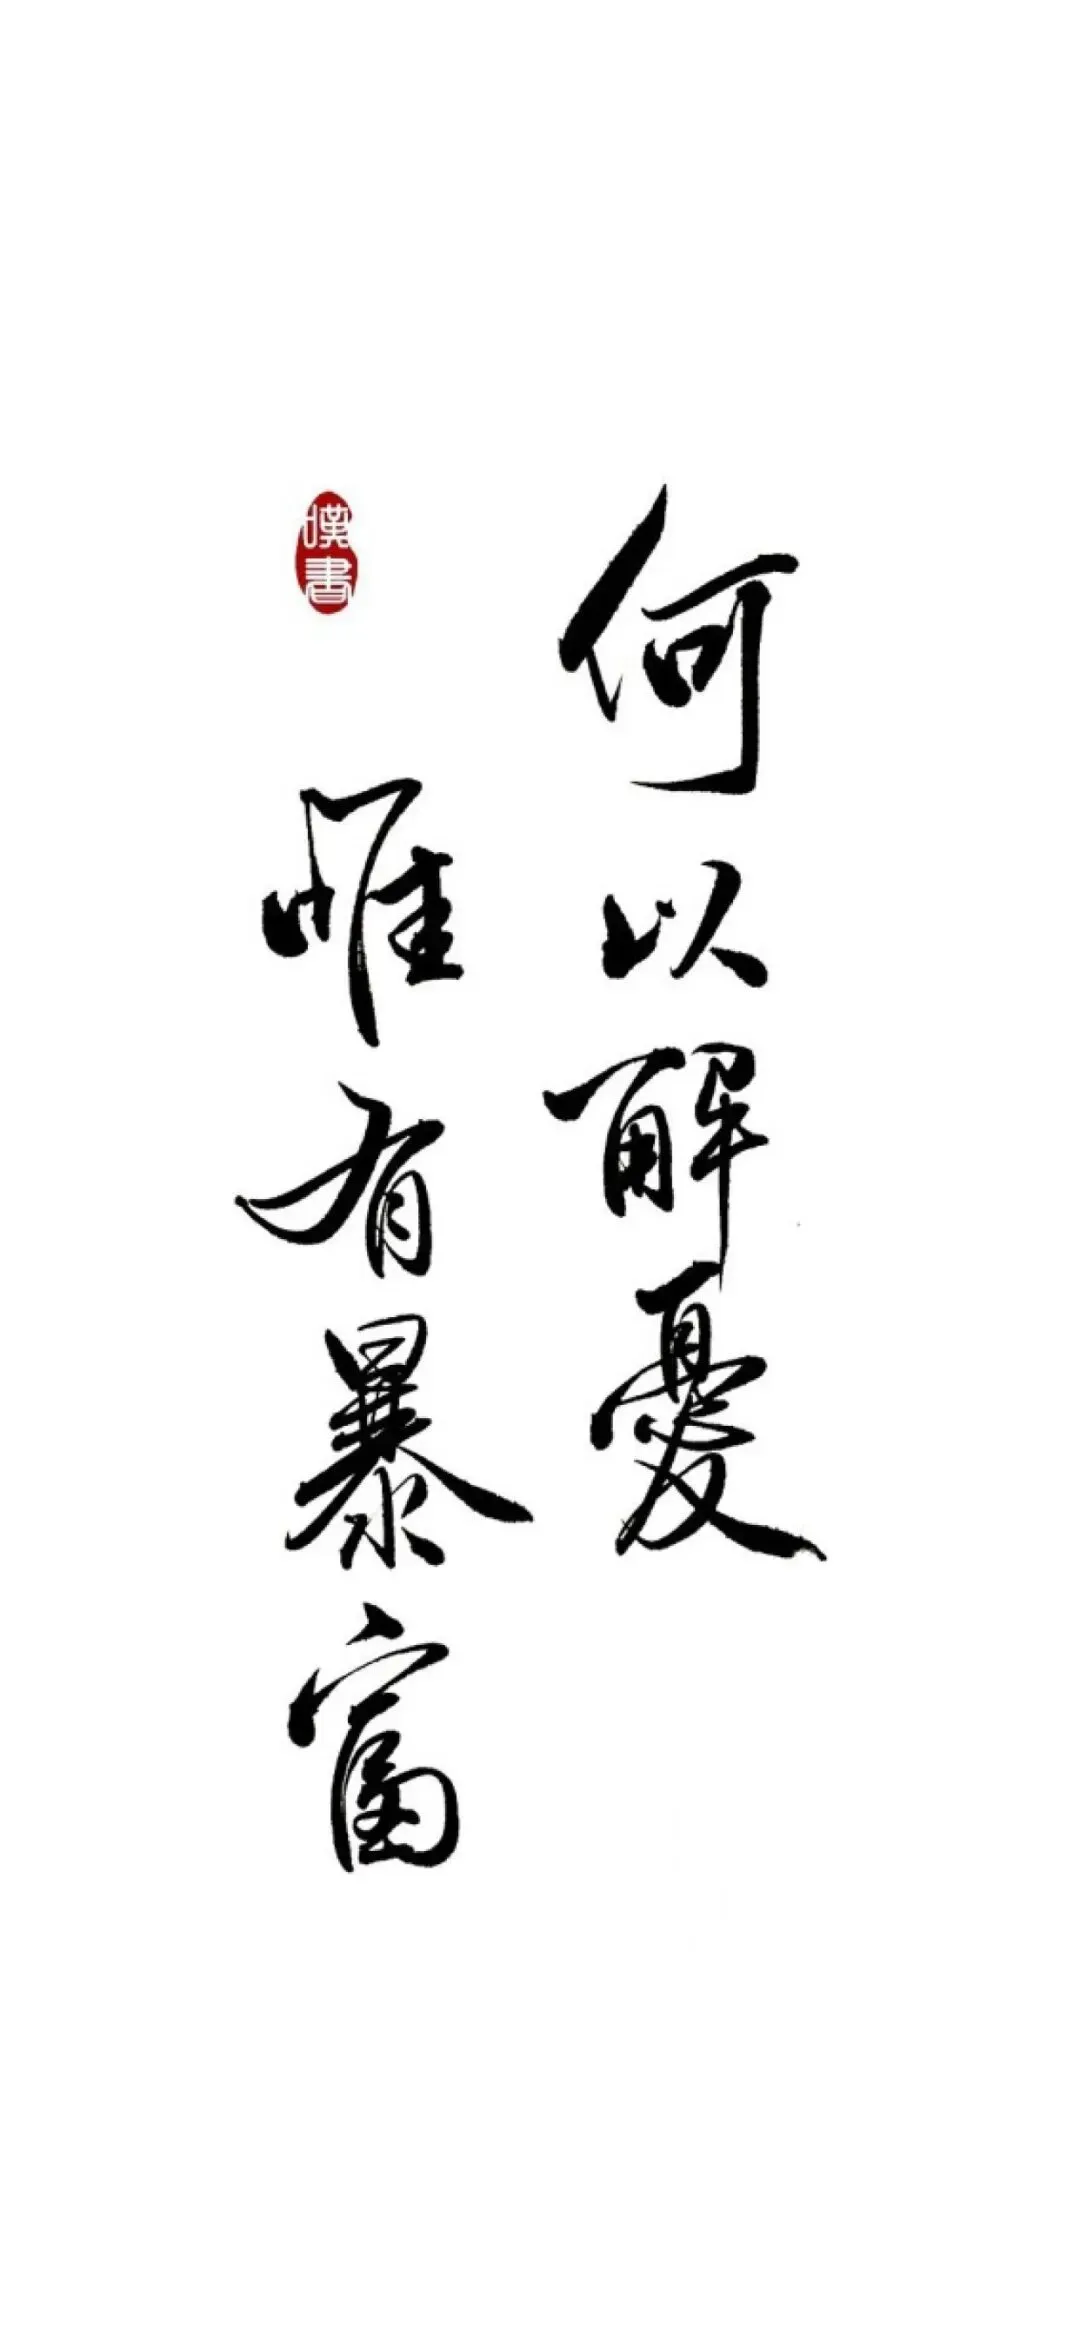 何以解憂
唯有暴富
嘆書